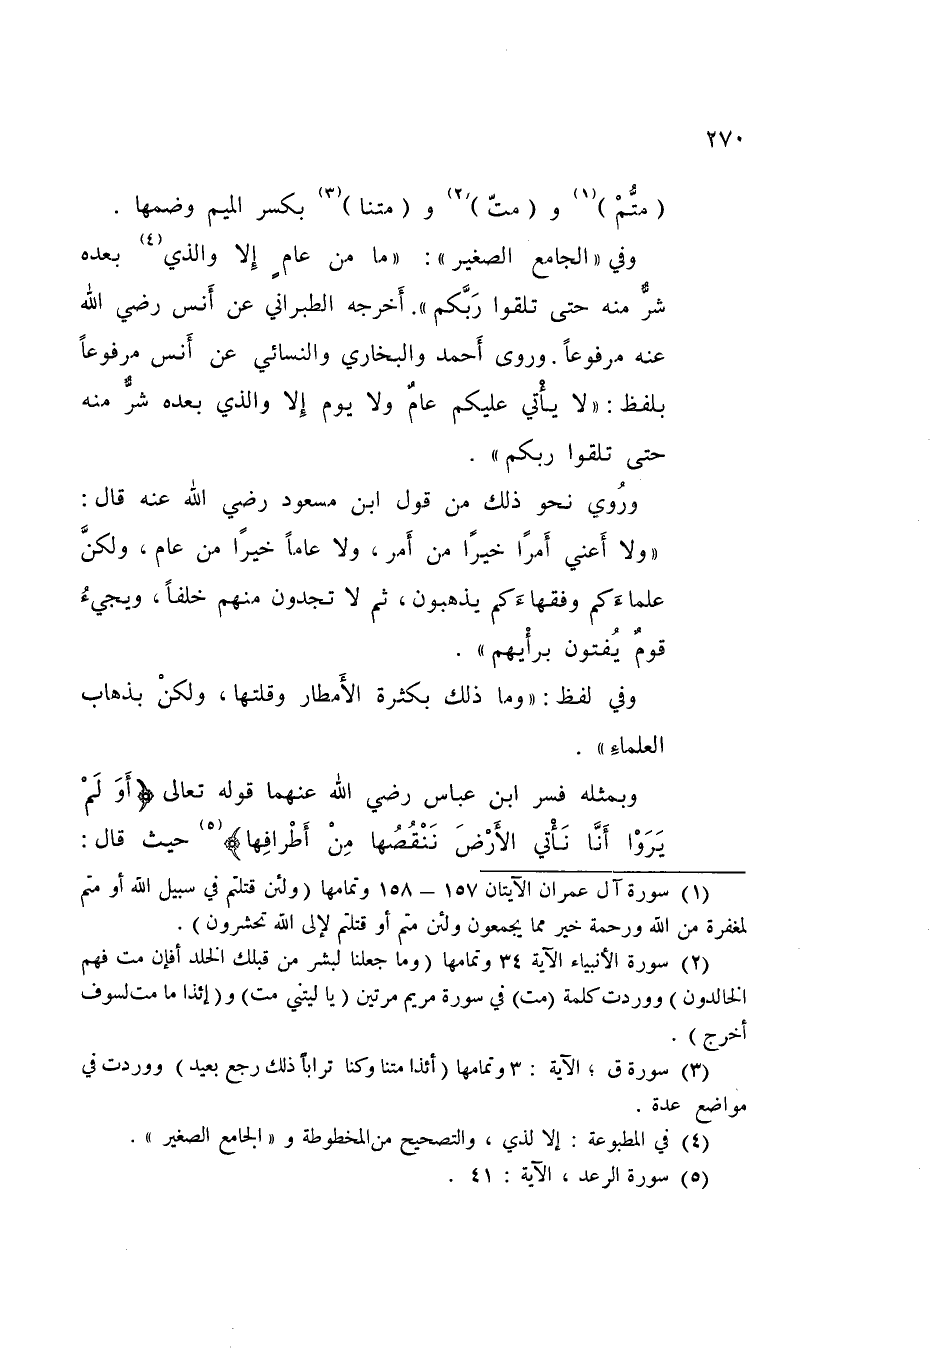 ٢٧٠
( متُّمْ )(١) و ( متّ )(٢) و ( متنا )(٣) بكسر الميم وضمها .
وفي « الجامع الصغير » : « ما من عامٍ إلا والذي(٤) بعده
شرٌّ منه حتى تلقوا رَبَّكم » . أخرجه الطبراني عن أَنس رضي الله
عنه مرفوعاً . وروى أَحمد والبخاري والنسائي عن أَنس مرفوعاً
بلفظ : « لا يأْتي عليكم عامٌ ولا يوم إلا والذي بعده شرٌّ منه
حتى تلقوا ربكم » .
ورُوي نحو ذلك من قول ابن مسعود رضي الله عنه قال :
« ولا أَعني أَمرًا خيرًا من أَمر ، ولا عاماً خيرًا من عام ، ولكنَّ
علماءَكم وفقهاءَكم يذهبون ، ثم لا تجدون منهم خلفاً ، ويجيءُ
قومٌ يُفتون برأْيهم » .
وفي لفظ : « وما ذلك بكثرة الأَمطار وقلتها ، ولكنْ بذهاب
العلماءِ » .
وبمثله فسر ابن عباس رضي الله عنهما قوله تعالى ﴿ أَوَ لَمْ
يَرَوْا أَنَّا نَأْتي الأَرْضَ نَنْقُصُها مِنْ أَطْرافِها ﴾(٥) حيث قال :
(١) سورة آل عمران الآيتان ١٥٧ – ١٥٨ وتمامها ( ولئن قتلتم في سبيل الله أو متم
لمغفرة من الله ورحمة خير مما يجمعون ولئن متم أو قتلتم لإلى الله تحشرون ) .
(٢) سورة الأنبياء الآية ٣٤ وتمامها ( وما جعلنا لبشر من قبلك الخلد أفإن مت فهم
الخالدون ) ووردت كلمة (مت) في سورة مريم مرتين ( يا ليتني مت) و( إئذا ما مت لسوف
أخرج ) .
(٣) سورة ق ؛ الآية : ٣ وتمامها ( أئذا متنا وكنا تراباً ذلك رجع بعيد ) ووردت في
مواضع عدة .
(٤) في المطبوعة : إلا لذي ، والتصحيح من المخطوطة و « الجامع الصغير » .
(٥) سورة الرعد ، الآية : ٤١ .